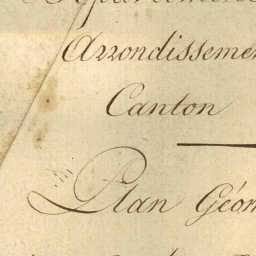 Arrondissemen
Canton
Plan Géom